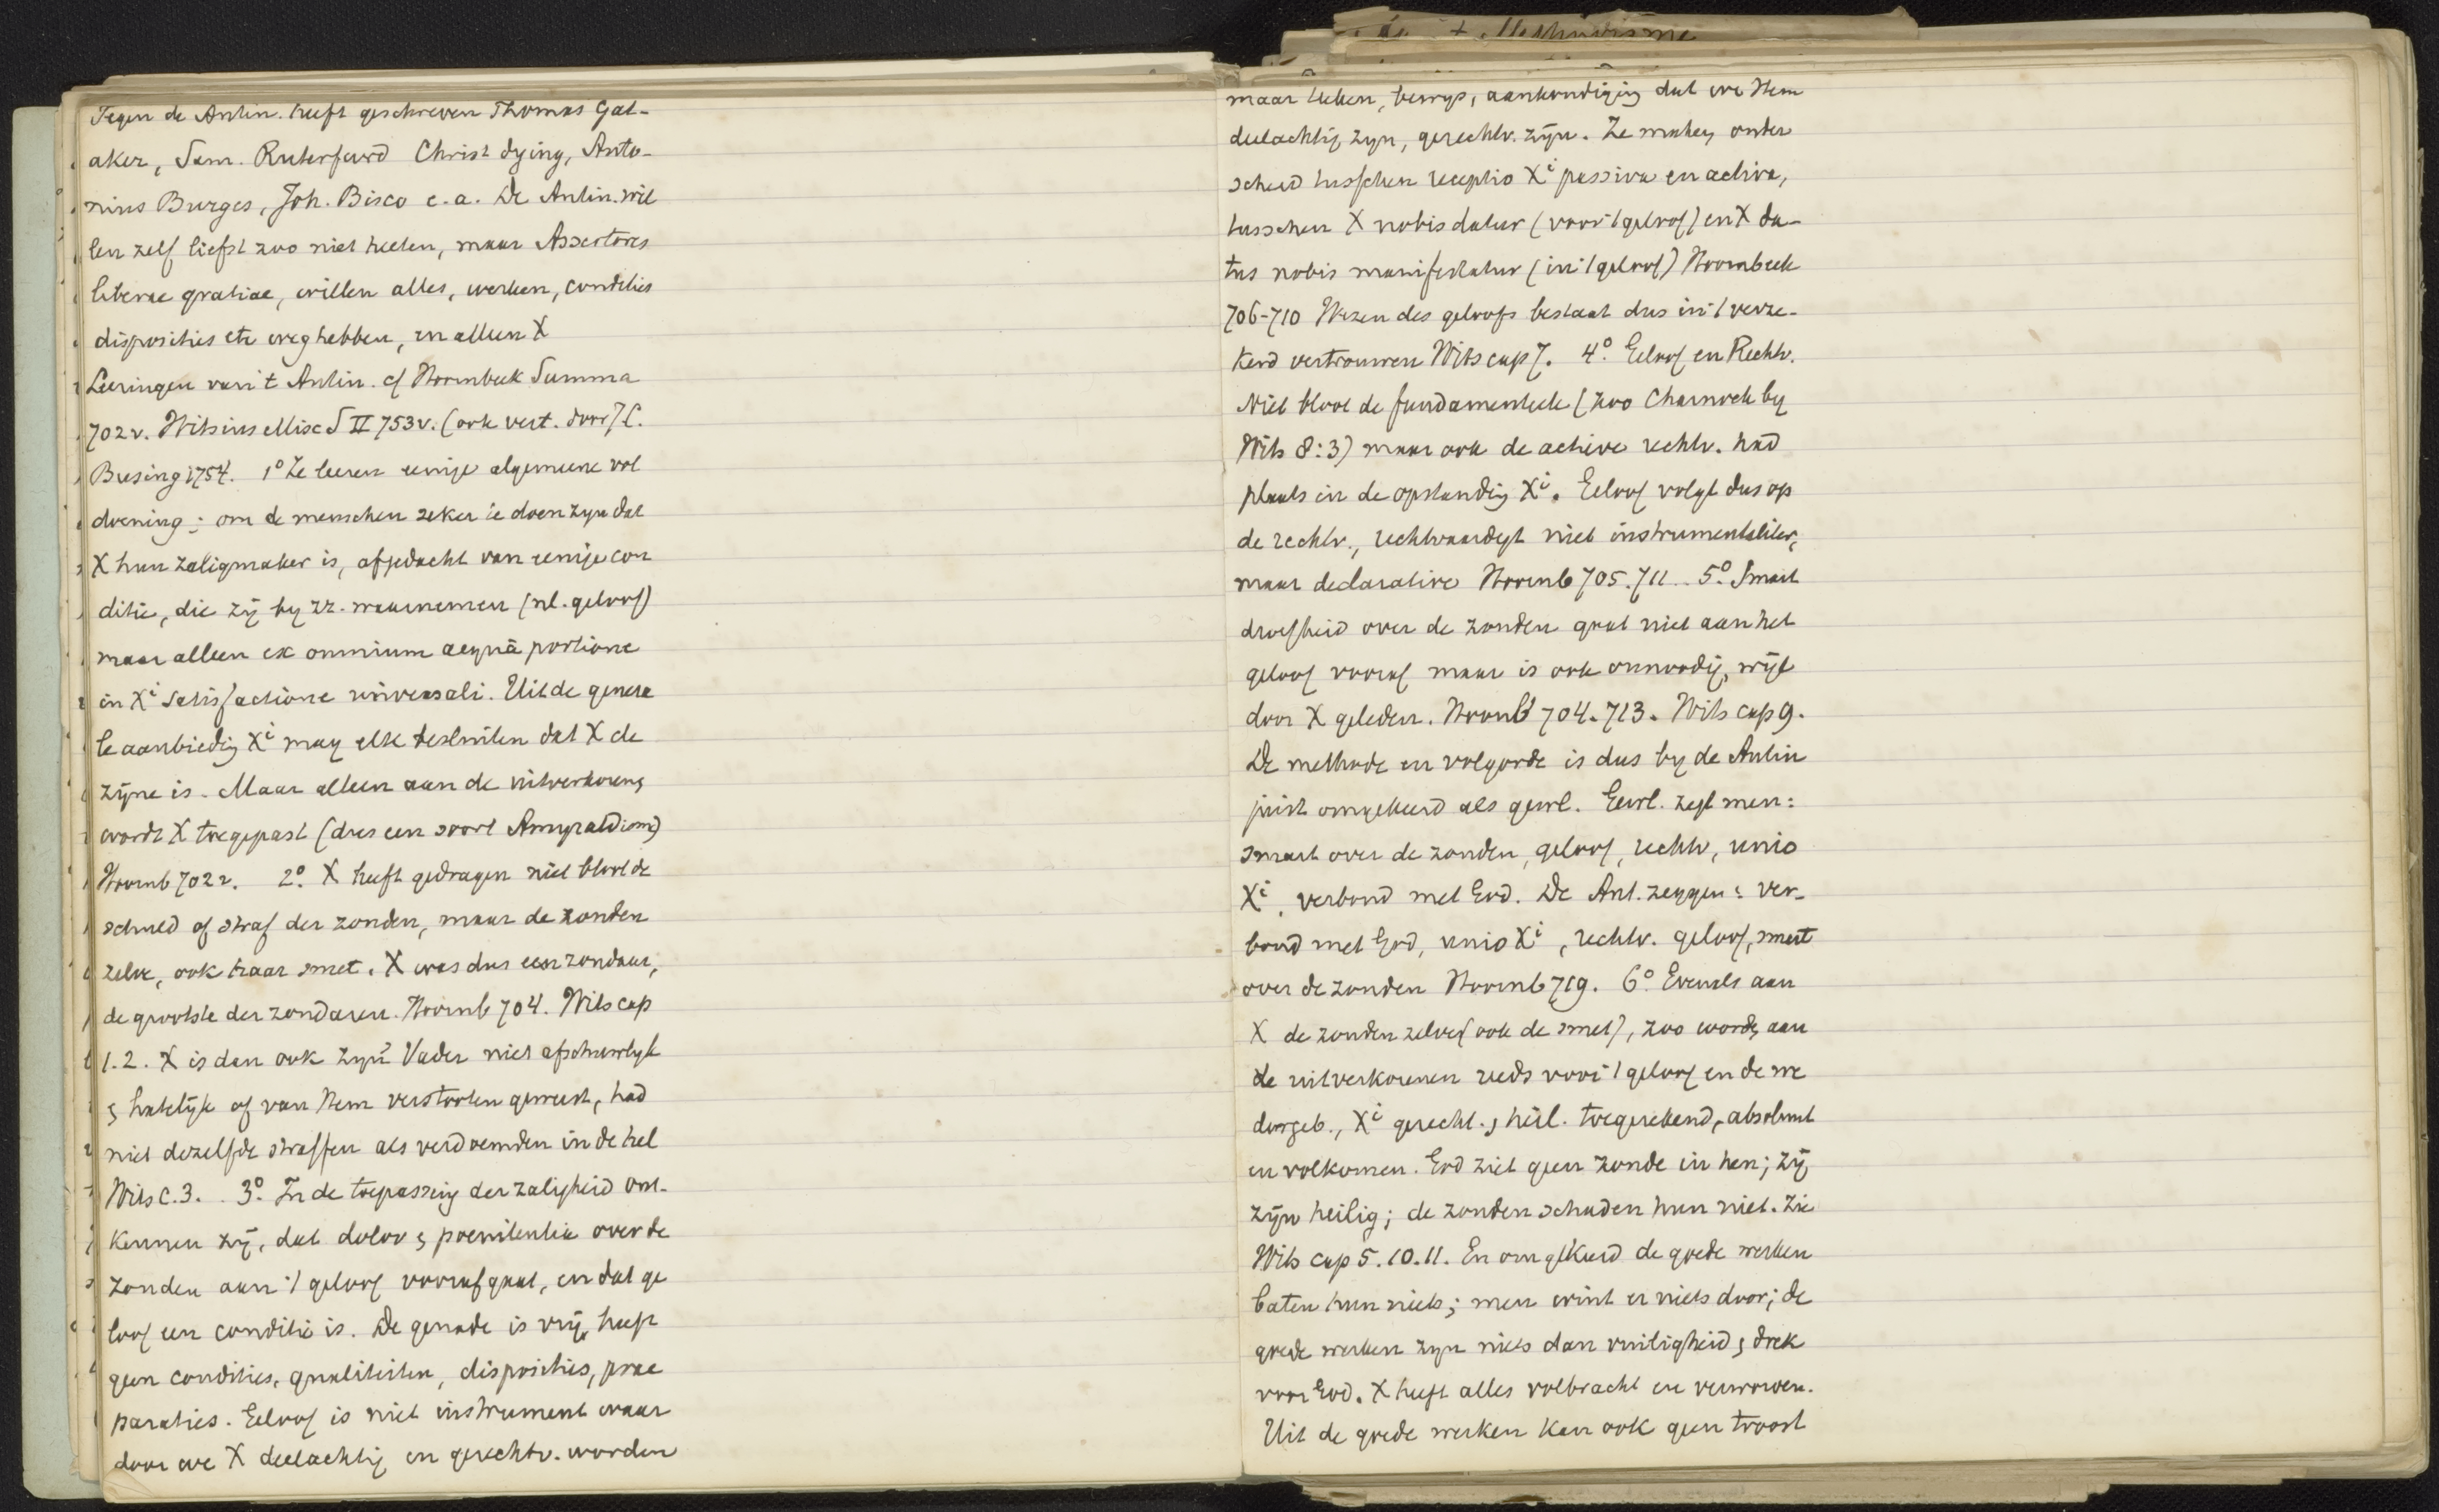 Tegen de Antin. heeft geschreven Thomas Gat-
aker, Sam. Rutherfurd Christ dying, Anto-
nius Burges, Joh. Bisco e.a. De Antin. wil
len zelf liefst zoo niet heeten, maar Assertores
liberae gratiae, willen alles, werken, condities
disposities etc weghebben, en alleen X
Leeringen van 't Antin. cf Hoornbeek Summa
702v. Witsius Misc S II 753v. (ook vert. door J C.
Busing 1754. 1° Ze leeren eenige algemeene vol
doening; om de menschen zeker te doen zyn dat
X hun zaligmaker is, afgedacht van eenige con
ditie, die zij by zz. waarnemen (nl. geloof)
maar alleen ex omnium aequâ portione
in Xi satisfactione universali. Uit de genera
le aanbiedig Xi mag elk besluiten dat X de
zijne is. Maar alleen aan de uitverkoreng
wordt X toegepast (dus een soort Amyraldisme)
Hoornb 702v. 2°. X heeft gedragen niet bloot de
schuld of straf der zonden, maar de zonden
zelve, ook haar smet. X was dus een zondaar,
de grootste der zondaren. Hoornb 704. Wits cap
1.2. X is dan ook zyn Vader niet afschuwlyk
& hatelijk of van Hem verstooten geweest, had
niet dezelfde straffen als verdoemden in de hel
Wits c.3. 3°. In de toepassing der zaligheid ont-
kennen zij, dat dolor & poenitentia over de
zonden aan 't geloof voorafgaat, en dat ge
loof een conditie is. De genade is vrij, heeft
geen condities, qualiteiten, disposities, prae
paraties. Geloof is niet instrument waar
door we X deelachtig en gerechtv. worden
maar teeken, bewys, aankondiging dat we Hem
deelachtig zyn, gerechtv. zijn. Ze maken onder
scheid tusschen receptio Xi passiva en activa,
tusschen X nobis datur (voor 't geloof) en X da-
tus nobis manifestatur (in 't geloof) Hoornbeek
706-710 Wezen des geloofs bestaat dus in 't verze-
kerd vertrouwen Wits cap 7. 4°. Geloof en Rechtv.
Niet bloot de fundamenteele (zoo Charnock by
Wits 8:3) maar ook de actieve rechtv. had
plaats in de opstandig Xi. Geloof volgt dus op
de rechtv., rechtvaardigt niet instrumentaliter,
maar declarative Hoornb 705.711. 5°. Smart
droefheid over de zonden gaat niet aan het
geloof vooraf maar is ook onnoodig, wijl
door X geleden. Hoornb 704.713. Wits cap 9.
De methode en volgorde is dus by de Antin
juist omgekeerd als gewl. Gewl. zegt men:
smart over de zonden, geloof, rechtv, unio
Xi, verbond met God. De Ant. zeggen: ver-
bond met God, unio Xi, rechtv. geloof, smart
over de zonden Hoornb 719. 6°. Evenals aan
X de zonden zelve (ook de smet), zoo wordt aan
de uitverkorenen reeds voor 't geloof en de we
dergeb., Xi gerecht. & heil. toegerekend, absoluut
en volkomen. God ziet geen zonde in hen; zij
zijn heilig; de zonden schaden hun niet. Zie
Wits cap 5.10.11. En omgekeerd de goede werken
baten hun niets; men wint er niets door; de
goede werken zyn niets dan vuiligheid & drek
voor God. X heeft alles volbracht en verworven.
Uit de goede werken kan ook geen troost